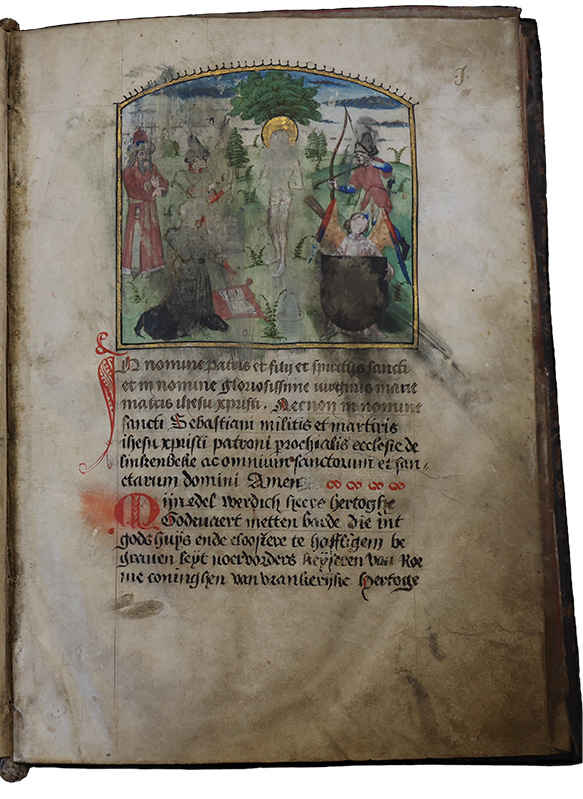 J
In nomine patris et filij et spiritus sancti
et in nomine gloriosissime virginis marie
matris ihesu xpristi. Necnon in nomine
sancti Sebastiani militis et martiris
ihesu xpristi patroni prochialis ecclesie de
linkenbeke ac omnium sanctorum et san-
ctarum domini Amen
Mijn edel werdich heere hertoghe
Godevaert metten barde die int
gods huijs ende cloostere te haffligem be
graven leyt voervorders keijseren van Roe
me coninghen van vranckerijke hertoge